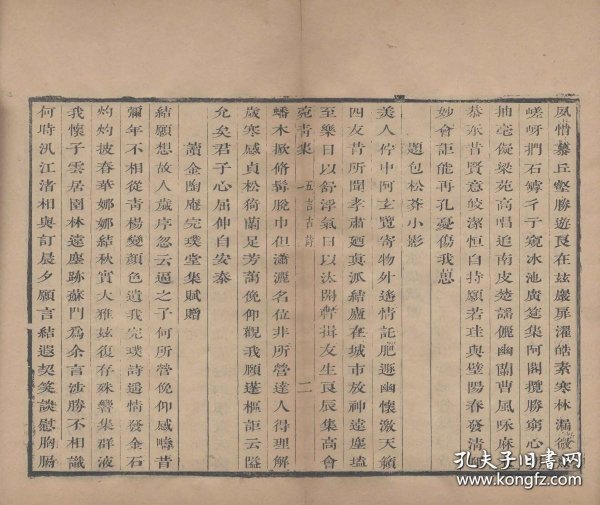 夙惜慕丘壑勝遊良在玆巖屏濯皓素寒林漏微
嵯岈捫石罅千亍窺冰池廣筵集阿閣攬勝窮心
抽毫儗梁苑高唱追南皮楚謡儷幽蘭曹風咏麻
恭承昔賢意皎潔恒自持願若珪與璧陽春發清
妙會詎能再孔憂傷我思
題包松莽小影
美人佇中阿玄覽寄物外遙情託肥遯幽懷激天籟
四友昔所聞孝肅廼真派結廬在城市放神遠塵壒
至樂日以舒浮氣日以汰開暫揖友生良辰集高會
宛青集
五言古詩
二
蟠木揿脩髯脫巾但瀟灑名位非所營達人得理解
歲寒感貞松猗蘭足芳藹俛仰觀我願蓬樞詎云隘
允矣君子心屈伸自安泰
讀金陶庵完璞堂集賦贈
結願想故人歲序忽云逼之子何所營俛仰感疇昔
彌年不相從青楊變顏色遺我完璞詩遥情發金石
灼灼披春華娜娜結秋實大雅玆復存殊響集群液
我懷子雲居園林遠塵跡蘇門為余言涉勝不相識
何時汎江渚相與訂晨夕願言結遐契笑談慰胸膈
孔夫子旧書网
www.kongfz.com